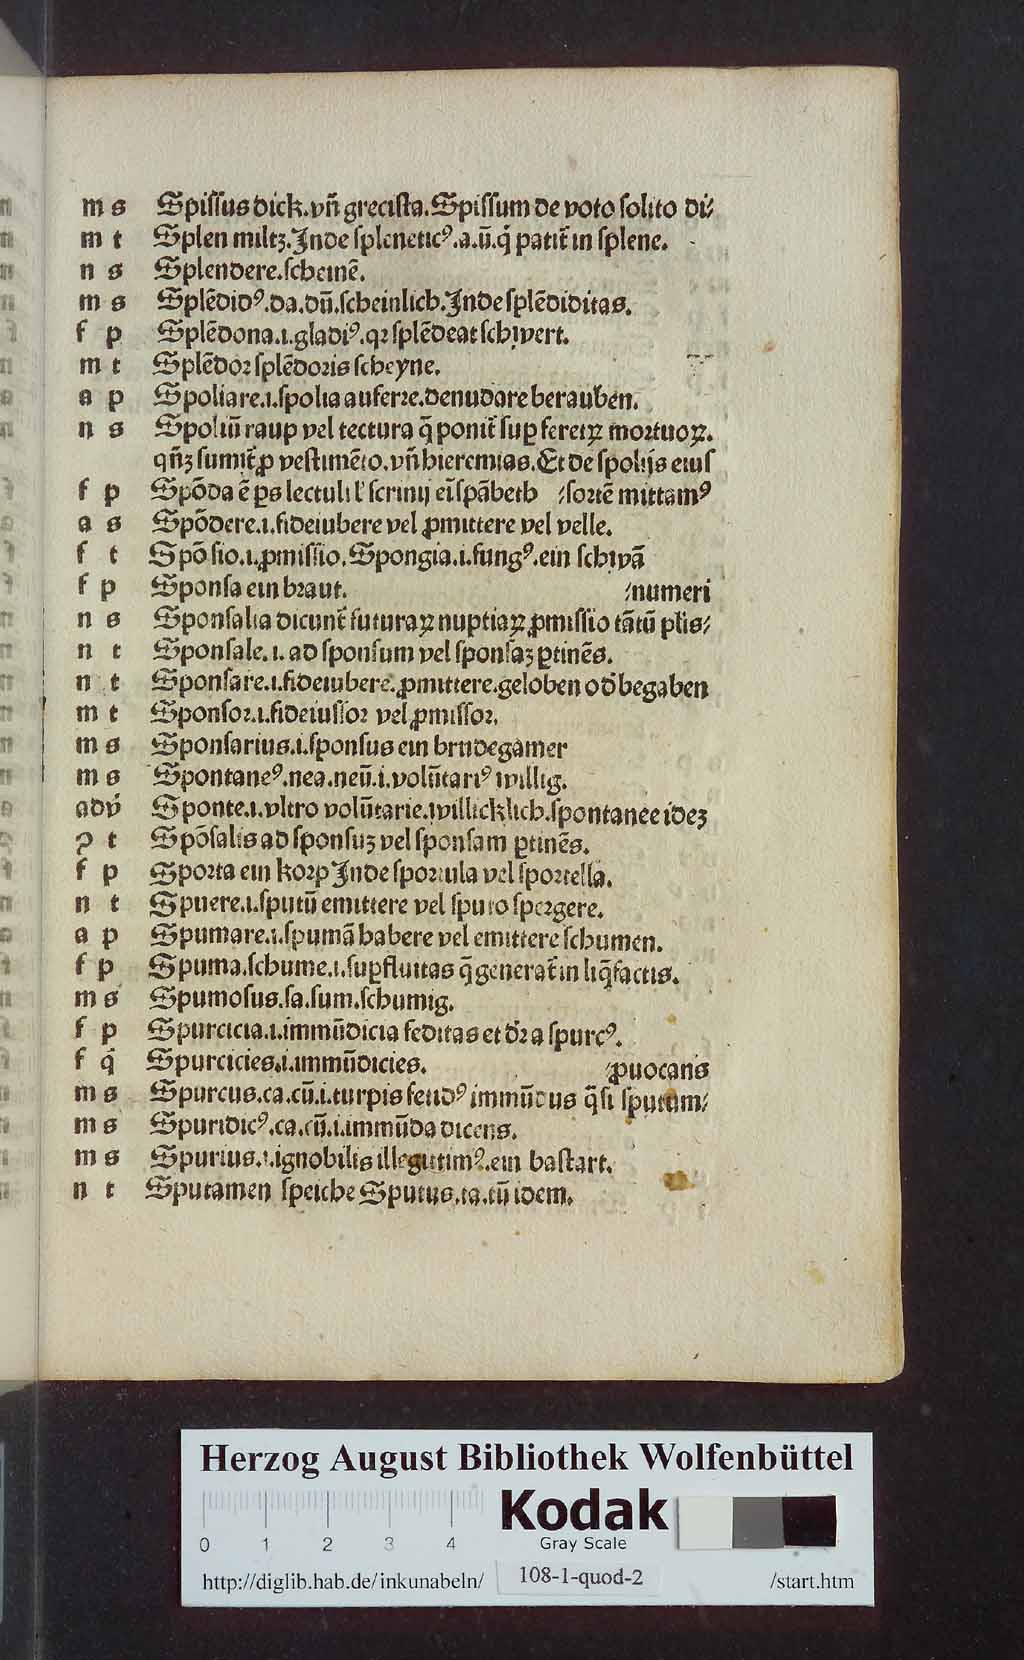 m s Spiſſus dick. vn̄ greciſta. Spiſſum de voto ſolito di⸗
m t Splen miltz. Inde ſplenetic⁹. a. ū. q̇ patit̃ in ſplene.
n s Splendere. ſcheinē.
m s Splēdid⁹. da. dū. ſcheinlich. Inde ſplēdiditas.
f p Splēdona. i. gladi⁹. qꝛ ſplēdeat ſchwert.
m t Splēdoꝛ ſplēdoꝛis ſcheyne.
a p Spoliare. i. ſpolia auferꝛe. denudare berauben.
n s Spoliū raup vel tectura q̄ ponit̃ ſuꝑ feretꝝ moꝛtuoꝝ.
qn̄ꝫ ſumit̃ ꝓ veſtimēto. vn̄ hieremias. Et de ſpolijs eiuſ
f p Spōda ē ꝑs lectuli l̕ ſcrinij ein̄ ſpābeth ⸗ſoꝛtē mittam⁹
a s Spōdere. i. fideiubere vel ꝓmittere vel velle.
f t Spōſio. i. ꝓmiſſio. Spongia. i. fung⁹. ein ſchwā
f p Sponſa ein bꝛaut. ⸗numeri
n s Sponſalia dicunt̃ futuraꝝ nuptiaꝝ ꝓmiſſio tātū pl̄is⸗
n t Sponſale. i. ad ſponſum vel ſponſaꝫ ꝑtinēs.
n t Sponſare. i. fideiubere. ꝓmittere. geloben od̕ begaben
m t Sponſoꝛ. i. fideiuſſoꝛ vel ꝓmiſſoꝛ.
m s Sponſarius. i. ſponſus ein brudegamer
m s Spontane⁹. nea. neū. i. volūtari⁹ willig.
adv̇ Sponte. i. vltro volūtarie. willicklich. ſpontanee ideꝫ
ꝰ t Spōſalis ad ſponſuꝫ vel ſponſam ꝑtinēs.
f p Spoꝛta ein koꝛp Inde ſpoꝛtula vel ſpoꝛtella.
n t Spuere. i. ſputū emittere vel ſputo ſpergere.
a p Spumare. i. ſpumā habere vel emittere ſchumen.
f p Spuma. ſchume. i. ſuꝑfluitas q̄ generat̃ in liq̄factis.
m s Spumoſus. ſa. ſum. ſchumig.
f p Spurcicia. i. immūdicia feditas et dꝛ̄ a ſpurc⁹.
f q̇ Spurcicies. i. immūdicies. ⸗ꝓuocans
m s Spurcus. ca. cū. i. turpis fetid⁹ immūdus q̄ſi ſputum⸗
m s Spuridic⁹. ca. cū. i. immūda dicens.
m s Spurius. i. ignobilis illegitim⁹. ein baſtart.
n t Sputamen ſpeiche Sputus. ta. tū idem.
Herzog August Bibliothek Wolfenbüttel
0 1 2 3 4
Kodak
Gray Scale
http://diglib.hab.de/inkunabeln/ 108-1-quod-2 /start.htm